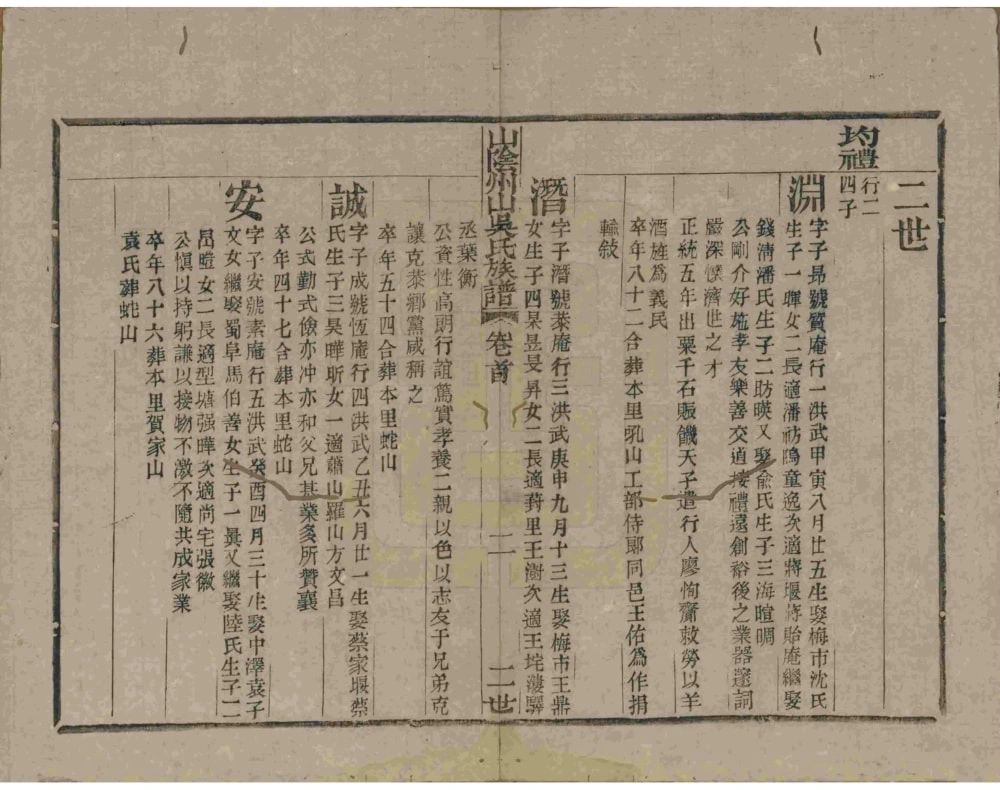 二世
均禮 行二
四子
淵
字子昻號質庵行一洪武甲寅八月廿五生娶梅市沈氏
生子一暉女二長適潘舫鳴童逸次適蔣堰蔣貽庵繼娶
錢清潘氏生子二昉暎又娶俞氏生子三海暄晭
公剛介好施孝友樂善交道接禮遠創裕後之業器邃詞
嚴深懷濟世之才
正統五年出粟千石賑饑天子遣行人廖恂齎敕勞以羊
酒旌為義民
卒年八十二合葬本里㲹山工部侍郎同邑王佑為作捐
輸敍
潛
字子潛號菾庵行三洪武庚申九月十三生娶梅市王鼎
女生子四杲昱旻昇女二長適葑里王澍次適王垞漊驛
丞葉衡
公資性高朗行誼篤實孝養二親以色以志友于兄弟克
讓克恭鄉黨咸稱之
卒年五十四合葬本里蛇山
誠
字子成號恆庵行四洪武乙丑六月廿一生娶蔡家堰蔡
氏生子三昊曄昕女一適蕭山羅山方文昌
公式勤式儉亦沖亦和父兄基業多所贊襄
卒年四十七合葬本里蛇山
安
字子安號素庵行五洪武癸酉四月三十生娶中澤袁子
文女繼娶蜀阜馬伯善女生子一㬎又繼娶陸氏生子二
昂暟女二長適型塘强曄次適尚宅張徽
公愼以持躬謙以接物不激不隨共成家業
卒年八十六葬本里賀家山
袁氏葬蛇山
山陰州山吳氏族譜 卷首 二 二世